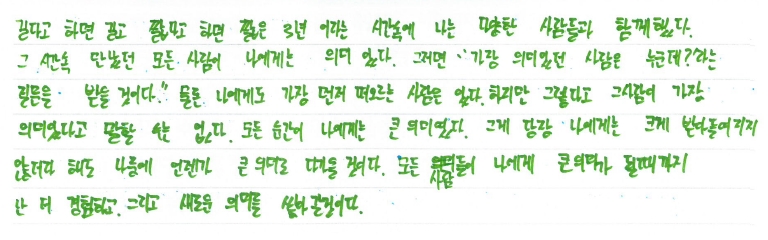 길다고 하면 길고 짧다고 하면 짧은 3년 이라는 시간속에 나는 다양한 사람들과 함께했다.
그 시간속 만났던 모든 사람이 나에게는 의미 있다. 그러면 "가장 의미있던 사람은 누군데?라는
질문을 받을 것이다." 물론 나에게도 가장 먼저 떠오르는 사람은 있다. 하지만 그렇다고 그사람이 가장
의미있다고 말할 수는 없다. 모든 순간이 나에게는 큰 의미였다. 그게 당장 나에게는 크게 받아들여지지
않는다 해도 나중에 언젠가 큰 의미로 다가올 것이다. 모든 사람들이 나에게 큰의미가 될때까지
난 더 경험하고. 그리고 새로운 의미를 쌓아갈것이다.